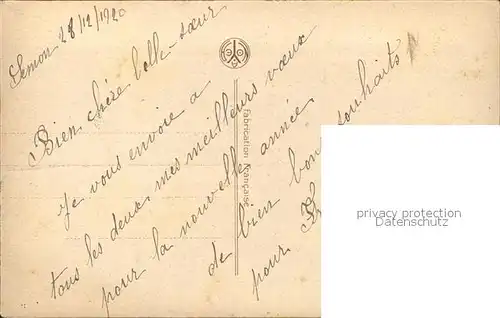 Semon 28/12/1920
Bien chère belle-sœur
Je vous envoie a
tous les deux, mes meilleurs vœux
pour la nouvelle année
de bien bons souhaits
pour
fabrication française
privacy protection
watermark